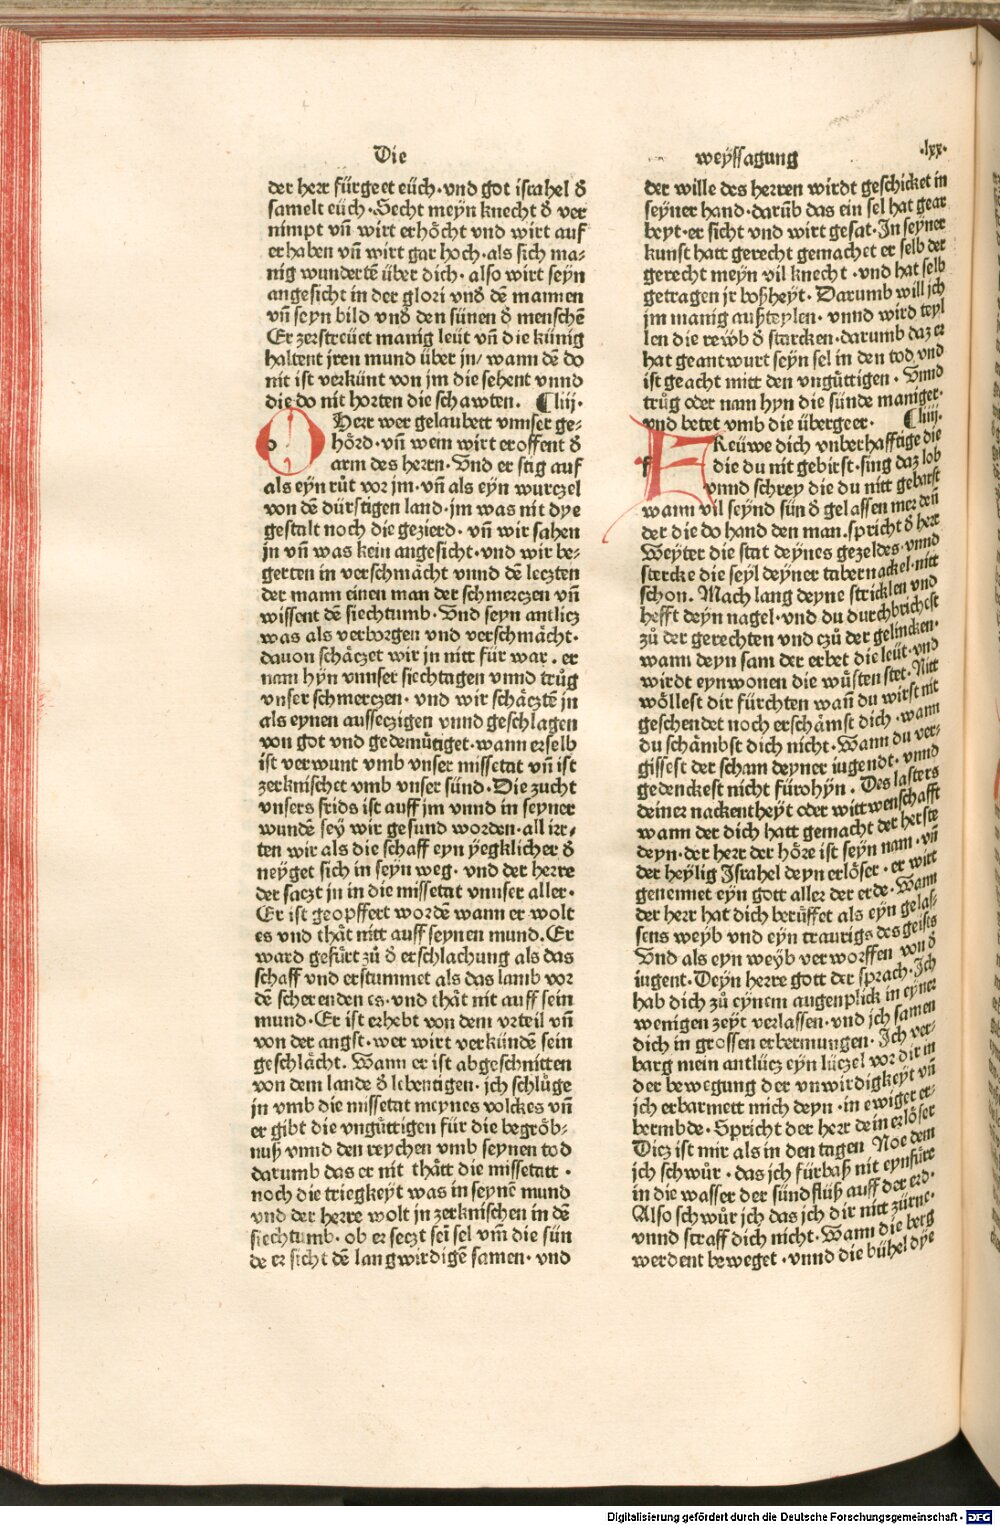 Die
weÿssagung
·lxx·
der herr fürgeet eüch·vnd got israhel ð
samelt eüch·Secht meÿn knecht ð ver
nimpt vñ wirt erhöcht vnd wirt auf
erhaben vñ wirt gar hoch·als sich ma⸗
nig wundertē über dich·also wirt seÿn
angesicht in der glori vnð dē mannen
vñ seyn bild vnð den sünen ð menschē
Er zerstreüet manig leüt vñ die künig
haltent jren mund über jn/wann dē do
nit ist verkünt von jm die sehent vnnd
die do nit horten die schawten. ¶liij·
O Herr wer gelaubett vnnser ge⸗
hörd·vñ wem wirt eroffent ð
arm des herrn·Vnd er stig auf
als eÿn růt vor jm·vñ als eÿn wurczel
von dē dürstigen land·jm was nit dye
gestalt noch die gezierd·vñ wir sahen
jn vñ was kein angesicht·vnd wir be⸗
gerten in verschmächt vnnd dē leczten
der mann einen man der schmerczen vñ
wissent dē siechtumb·Vnd seyn antlicz
was als verborgen vnd verschmächt·
dauon schäczet wir jn nitt für war·er
nam hÿn vnnser siechtagen vnnd trůg
vnser schmerczen·vnd wir schäcztē jn
als eynen ausseczigen vnnd geschlagen
von got vnd gedemütiget·wann er selb
ist verwunt vmb vnser missetat vñ ist
zerknischet vmb vnser sünd·Die zucht
vnsers frids ist auff jm vnnd in seyner
wundē seÿ wir gesund worden·all irr⸗
ten wir als die schaff eyn ÿegklicher ð
neyget sich in seÿn weg·vnd der herre
der saczt jn in die missetat vnnser aller·
Er ist geopffert wordē wann er wolt
es vnd thät nitt auff seynen mund. Er
ward gefürt zů ð erschlachung als das
schaff vnd erstummet als das lamb vor
dē scherenden es·vnd thät nit auff sein
mund·Er ist erhebt von dem vrteil vñ
von der angst·wer wirt verkündē sein
geschlächt. Wann er ist abgeschnitten
von dem lande ð lebentigen·ich schlüge
jn vmb die missetat meynes volckes vñ
er gibt die vngüttigen für die begröb⸗
nuß vnnd den reychen vmb seynen tod
darumb das er nit thätt die missetatt·
noch die triegkeÿt was in seynē mund
vnd der herre wolt jn zerknischen in dē
siechtumb·ob er seczt sei sel vm̄ die sün
de er sicht dē langwirdigē samen·vnd
der wille des herren wirdt geschicket in
seyner hand·darüb das ein sel hat gear
beyt·er sicht vnd wirt gesat·In seyner
kunst hatt gerecht gemachet er selb der
gerecht meÿn vil knecht·vnd hat selb
getragen jr boßheÿt·Darumb will ich
jm manig außteylen·vnnd wird teyl
len die rewb ð starcken·darumb daz er
hat geantwurt seÿn sel in den tod vnd
ist geacht mitt den vngüttigen·Vnnd
trůg oder nam hyn die sünde maniger·
vnd betet vmb die übergeer· ¶liiij·
FReüwe dich vnberhafftige die
die du nit gebirst·sing daz lob
vnnd schrey die du nitt gebarst
wann vil seynd sün ð gelassen mer deñ
der die do hand den man·spricht ð herr
Weyter die stat deynes gezeldes·vnnd
stercke die seyl deÿner tabernackel·nitt
schon. Mach lang deyne stricklen vnd
hefft deÿn nagel·vnd du durchbrichest
zů der gerechten vnd czů der gelincken·
wann deyn sam der erbet die leüt·vnd
wirdt eynwonen die wůsten stet·Nitt
wöllest dir fürchten wañ du wirst nit
geschendet noch erschämst dich·wann
du schämbst dich nicht·Wann du ver⸗
gissest der scham deyner iugendt·vnnd
gedenckest nicht fürohÿn. Des lasters
deiner nackentheÿt oder wittwenschafft
wann der dich hatt gemacht der herste
deyn·der herr der höre ist seÿn nam·vñ
der heylig Israhel deyn erlöser·er wirt
genennet eÿn gott aller der erde·Wann
der herr hat dich berüffet als eÿn gelas⸗
sens weÿb vnd eÿn traurigs des geists
Vnd als eyn weÿb verworffen von ð
iugent·Deÿn herre gott der sprach·Ich
hab dich zů eÿnem augenplick in eyner
wenigen zeÿt verlassen·vnd ich samen
dich in grossen erbermungen·Ich ver⸗
barg mein antlücz eÿn lüczel vor dir in
der bewegung der vnwirdigkeÿt vñ
ich erbarmett mich deyn·in ewiger er⸗
bermbde·Spricht der herr dein erlöser
Dicz ist mir als in den tagen Noe dem
ich schwůr·das ich fürbaß nit eynfüre
in die wasser der sündflüß auff der erd·
Also schwůr ich das ich dir nitt zürne·
vnnd straff dich nicht·Wann die berg
werdent beweget·vnnd die bühel dÿe
Digitalisierung gefördert durch die Deutsche Forschungsgemeinschaft - DFG